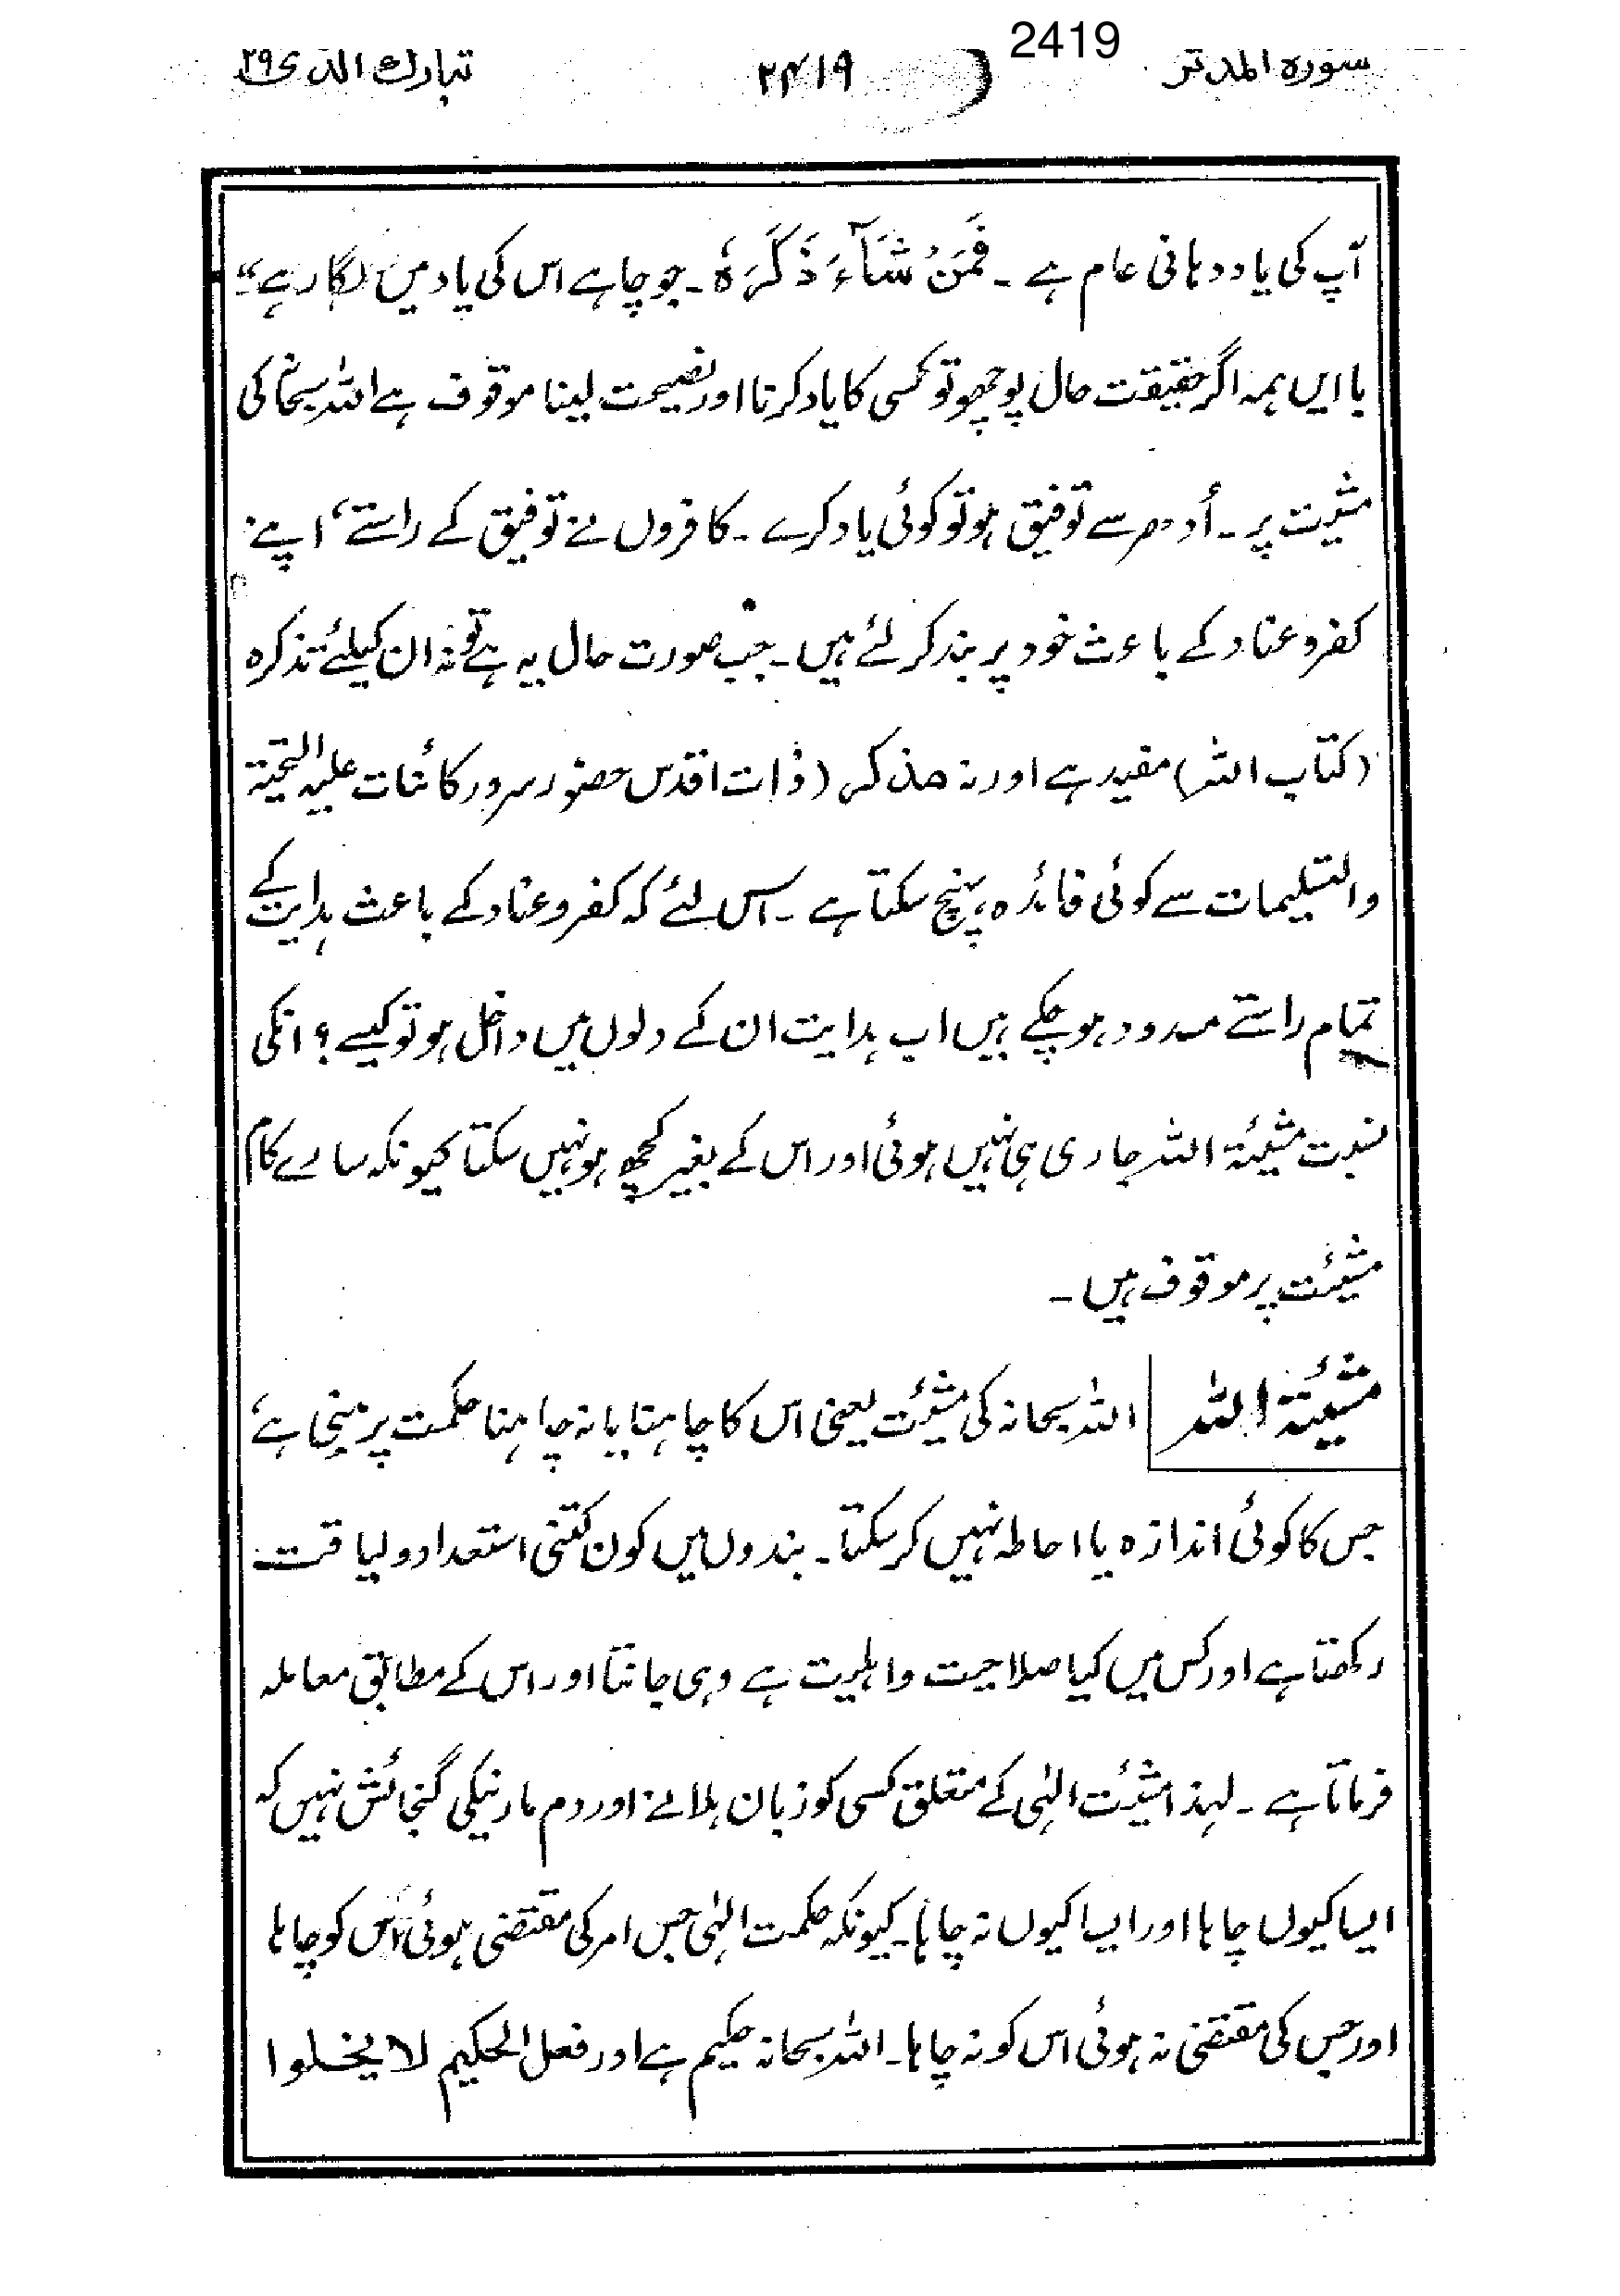 2419
سورہ المدثر ۲۴۱۹ تبارک الذی ۲۹
آپ کی یاد دہانی عام ہے ۔ فَمَنْ شَآءَ ذَکَرَہٗ ۔ جو چاہے اس کی یاد میں لگا رہے“
با ایں ہمہ اگر حقیقت حال پوچھو تو کسی کا یاد کرنا اور نصیحت لینا موقوف ہے اللہ سبحانہٗ کی
مشیّت پر ۔ اُدھر سے توفیق ہو تو کوئی یاد کرے ۔ کافروں نے توفیق کے راستے، اپنے
کفر و عناد کے باعث خود پر بند کر لئے ہیں ۔ جب صورت حال یہ ہے تو نہ ان کیلئے تذکرہ
(کتاب اللہ) مفید ہے اور نہ مذکر (ذات اقدس حضور سرور کائنات علیہ التحیۃ
والتسلیمات سے کوئی فائدہ پہنچ سکتا ہے ۔ اس لئے کہ کفر و عناد کے باعث ہدایت کے
تمام راستے مسدود ہو چکے ہیں اب ہدایت ان کے دلوں میں داخل ہو تو کیسے ؟ انکی
نسبت مشیئۃ اللہ جاری ہی نہیں ہوئی اور اس کے بغیر کچھ ہو نہیں سکتا کیونکہ سارے کام
مشیئت پر موقوف ہیں ۔
مشیئۃ اللہ اللہ سبحانہ کی مشیئت یعنی اس کا چاہنا یا نہ چاہنا حکمت پر مبنی ہے،
جس کا کوئی اندازہ یا احاطہ نہیں کر سکتا ۔ بندوں میں کون کتنی استعداد و لیاقت
رکھتا ہے اور کس میں کیا صلاحیت و اہلیت ہے وہی جانتا اور اس کے مطابق معاملہ
فرماتا ہے ۔ لہذا مشیئت الہٰی کے متعلق کسی کو زبان ہلانے اور دم مارنیکی گنجائش نہیں کہ
ایسا کیوں چاہا اور ایسا کیوں نہ چاہا ۔ کیونکہ حکمت الہٰی جس امر کی مقتضی ہوئی، اس کو چاہا
اور جس کی مقتضی نہ ہوئی اس کو نہ چاہا ۔ اللہ سبحانہ حکیم ہے اور فعل الحکیم لا یخلوا